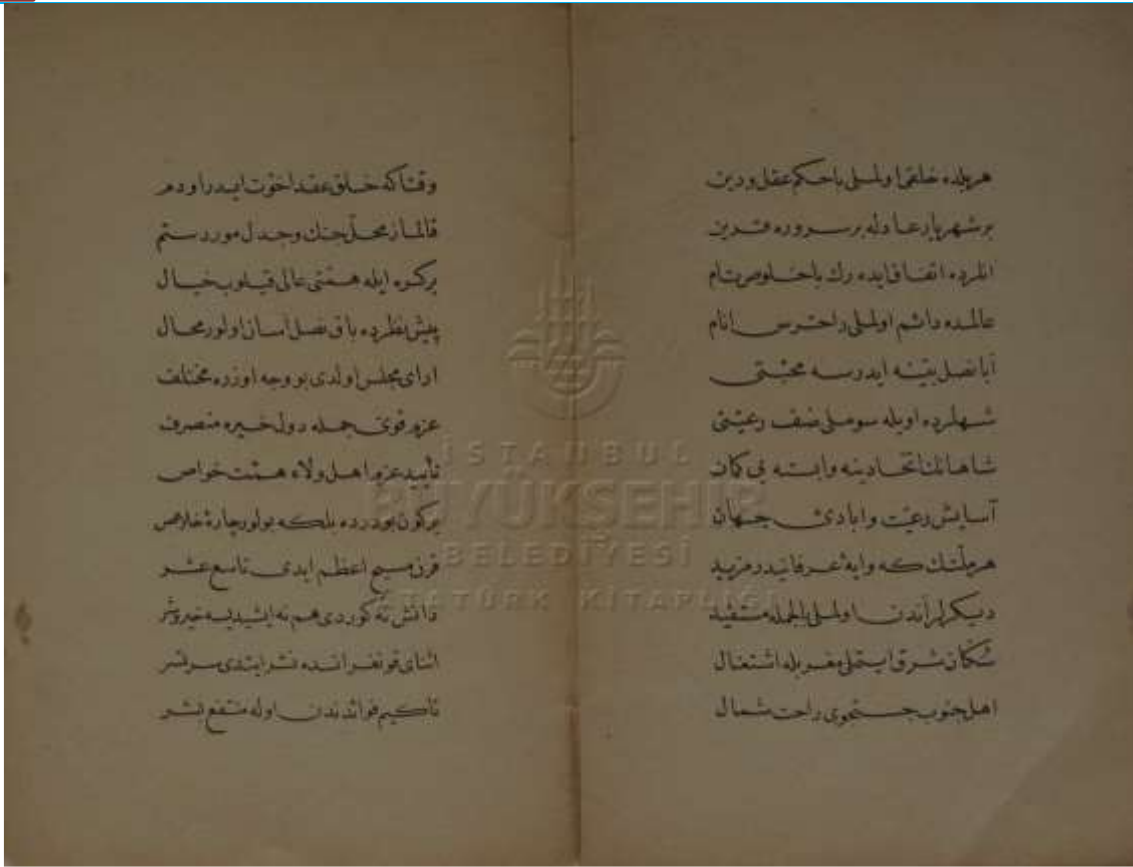 هر بلده خلقی اولملی باحکم عقل و دین
بر شهریار عادله بر سروره قرین
انلرده اتفاق ایده رك باخلوص تام
عالمده دائم اولملی راحترس انام
آیا نصل بتیسنه ایدرسه محبتی
شهلرده اویله سوملی ضعف رعیتی
شاهانك اتحادینه وابسته بی کمان
آسایش رعیت و ابادئ جهان
هر ملتك که وایۀ عرفانیدر مزید
دیکرلر آندن اولملی بالجمله مستفید
سکان شرق ایستملی مغربله اشتغال
اهل جنوب جستجوی راحت شمال
وقتاکه خلق عقد اخوت ایدر او دم
قالماز محل جنك و جدل مور و رستم
بر کره ایله همتی عالی قیلوب خیال
پیش نظرده باق نصل آسان اولور محال
ارای مجلس اولدی بو وجه اوزره مختلف
عزم قوی جمله دول خیره منصرف
تأیید عزم اهل ولاء همت خواص
بر کون بو درده بلکه بولور چارۀ خلاص
قرن مسیح اعظم ایدی تاسع عشر
دانش نه کوردی هم نه ایشیدیسه خیر و شر
اثنای قونفرانسده نشر ایتدی سربسر
تاکیم فوائدندن اوله منتفع بشر
İSTANBUL
BÜYÜKŞEHİR
BELEDİYESİ
ATATÜRK KİTAPLIĞI